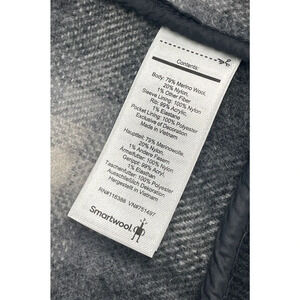 Contents:
Body: 79% Merino Wool,
20% Nylon,
1% Other Fiber
Sleeve Lining: 100% Nylon
Rib: 99% Acrylic,
1% Elastane
Pocket Lining: 100% Polyester
Exclusive of Decoration
Made in Vietnam
Hauptteil: 79% Merinowolle,
20% Nylon,
1% Andere Fasern
Ärmelfutter: 100% Nylon
Gerippt: 99% Acryl,
1% Elasthan
Taschenfutter: 100% Polyester
Ausschließlich Dekoration
Hergestellt in Vietnam
RN#116388 VN#751497
Smartwool